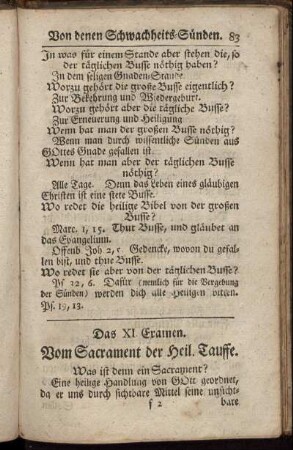 Von denen Schwachheits-Sünden. 83
In was für einem Stande aber stehen die, so
der täglichen Busse nöthig haben?
In dem seligen Gnaden-Stande.
Worzu gehört die grosse Busse eigentlich?
Zur Bekehrung und Wiedergeburt.
Worzu gehört aber die tägliche Busse?
Zur Erneuerung und Heiligung
Wenn hat man der grossen Busse nöthig?
Wenn man durch wissentliche Sünden aus
GOttes Gnade gefallen ist.
Wenn hat man aber der täglichen Busse
nöthig?
Alle Tage. Denn das Leben eines gläubigen
Christen ist eine stete Busse.
Wo redet die heilige Bibel von der grossen
Busse?
Marc. 1, 15. Thut Busse, und gläubet an
das Evangelium.
Offenb Joh 2, 5. Gedencke, wovon du gefal-
len bist, und thue Busse.
Wo redet sie aber von der täglichen Busse?
Ps 32, 6. Dafür (nemlich für die Vergebung
der Sünden) werden dich alle Heiligen bitten.
Ps. 19, 13.
Das XI. Examen.
Vom Sacrament der Heil. Tauffe.
Was ist denn ein Sacrament?
Eine heilige Handlung von GOtt geordnet,
da er uns durch sichtbare Mittel seine unsicht-
f 2 bare